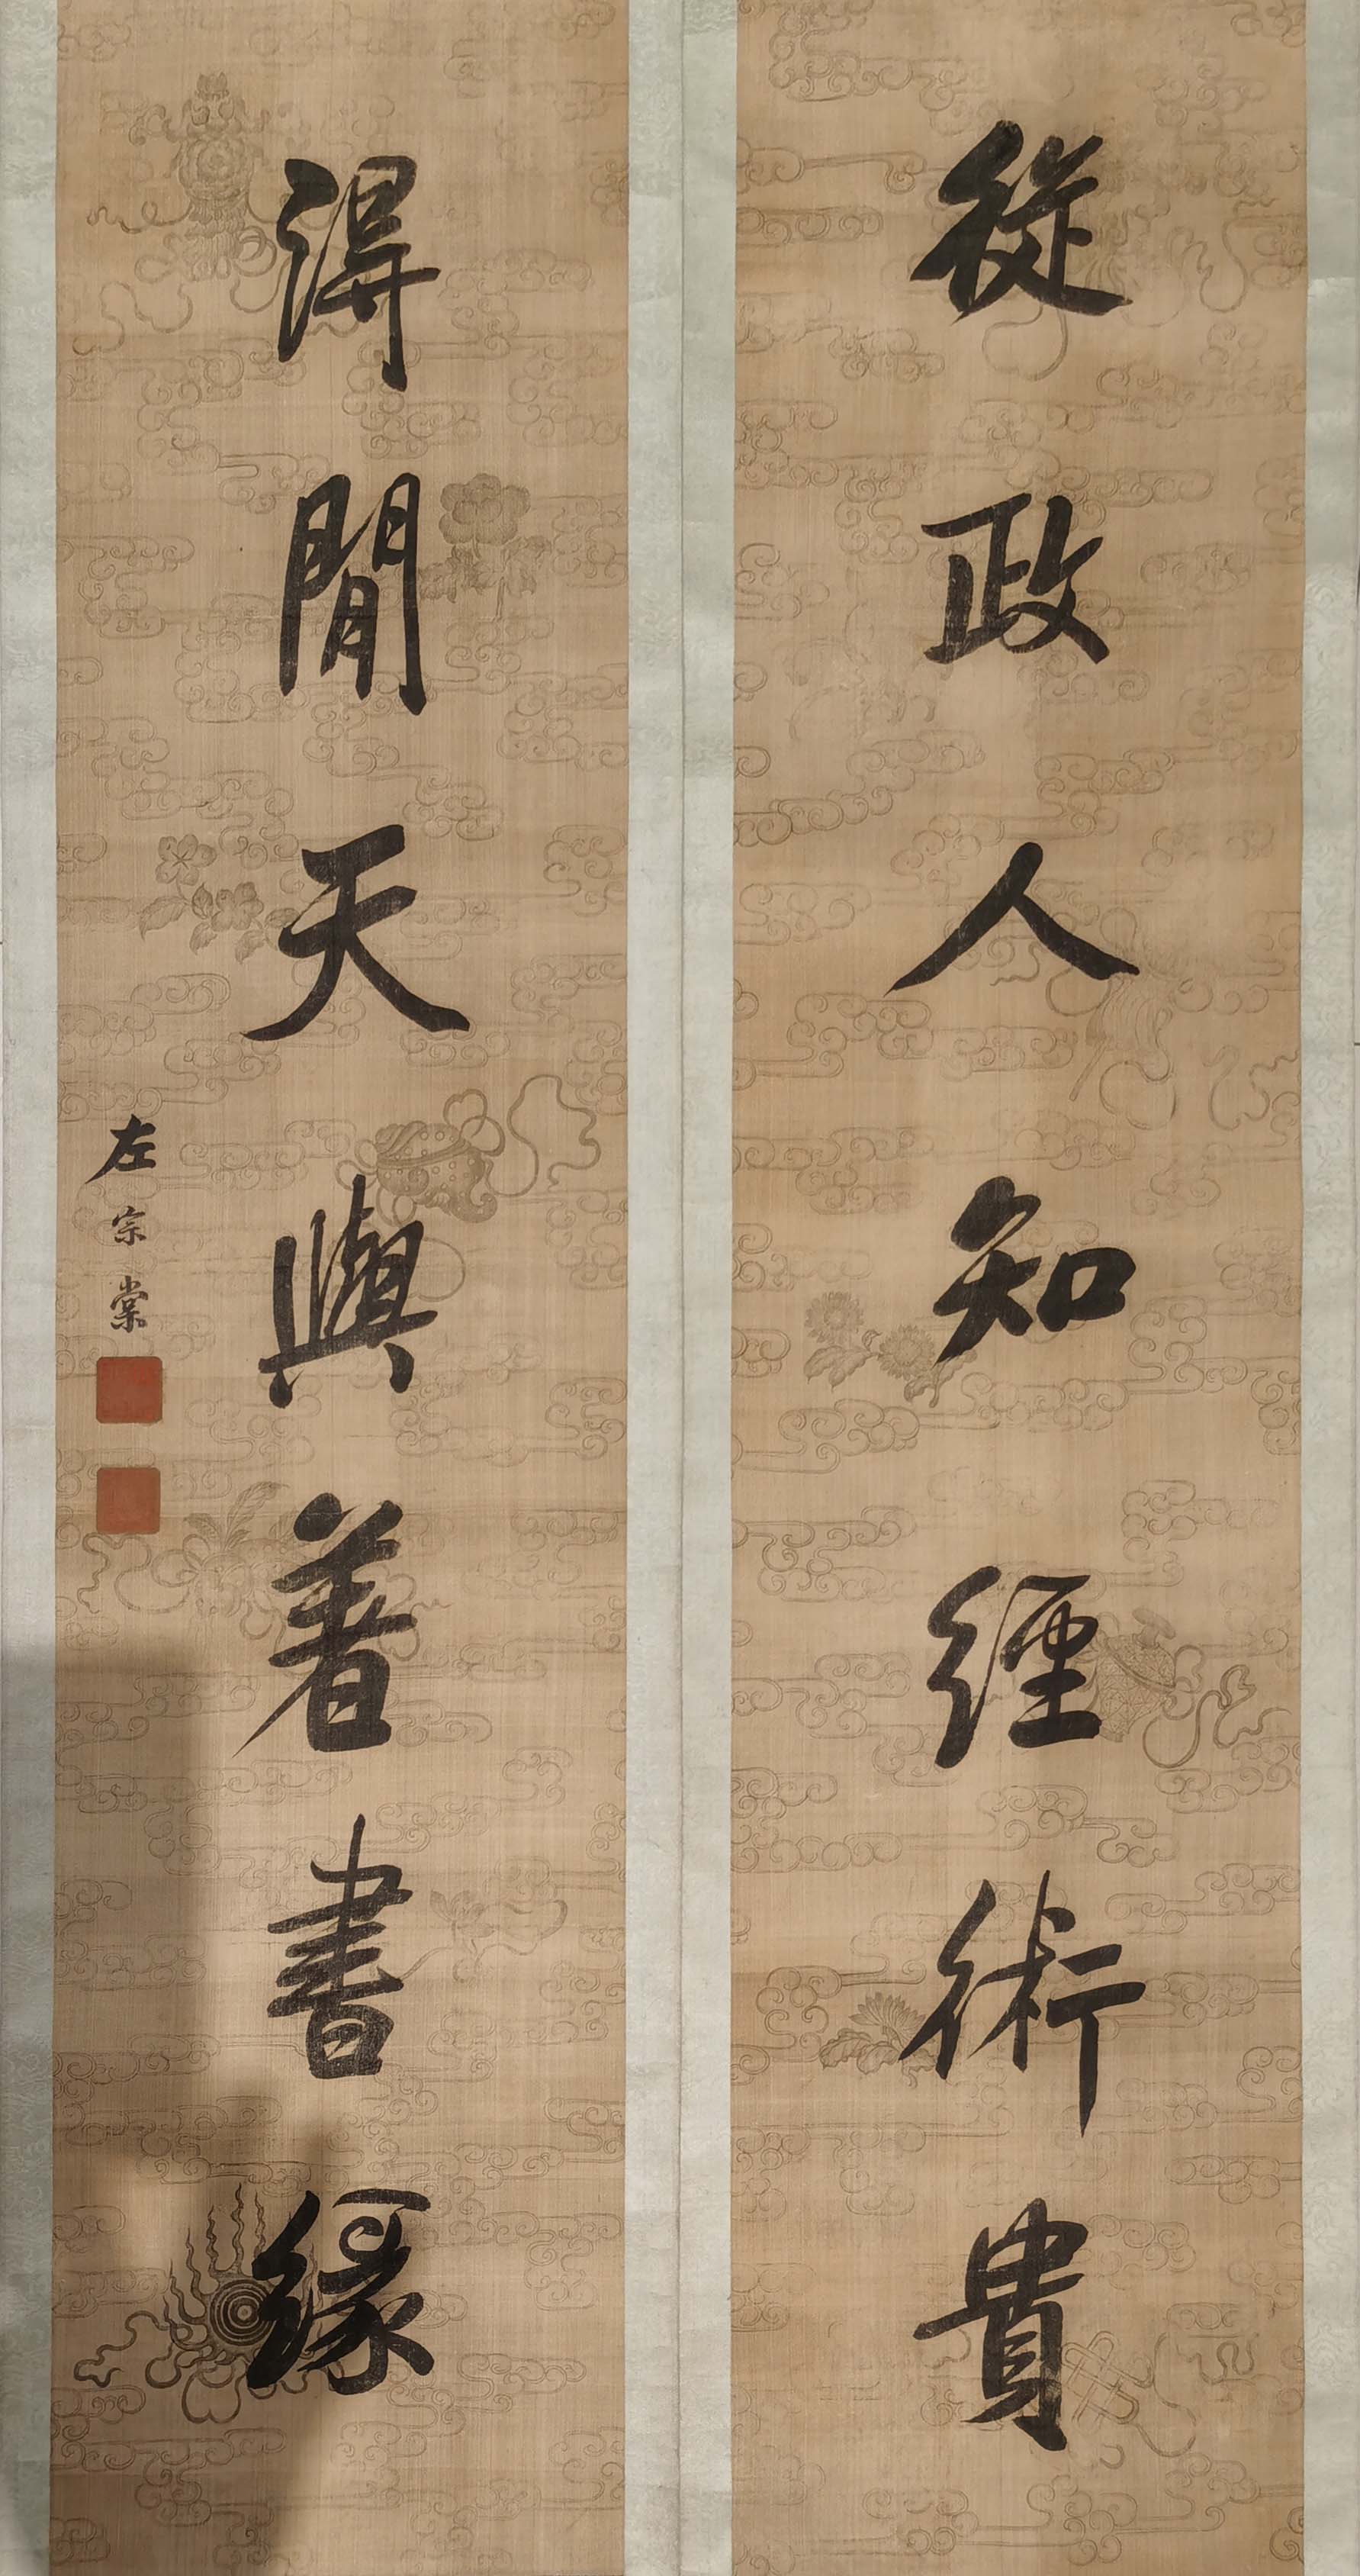 從政人知經術貴
得閒天與著書緣
左宗棠